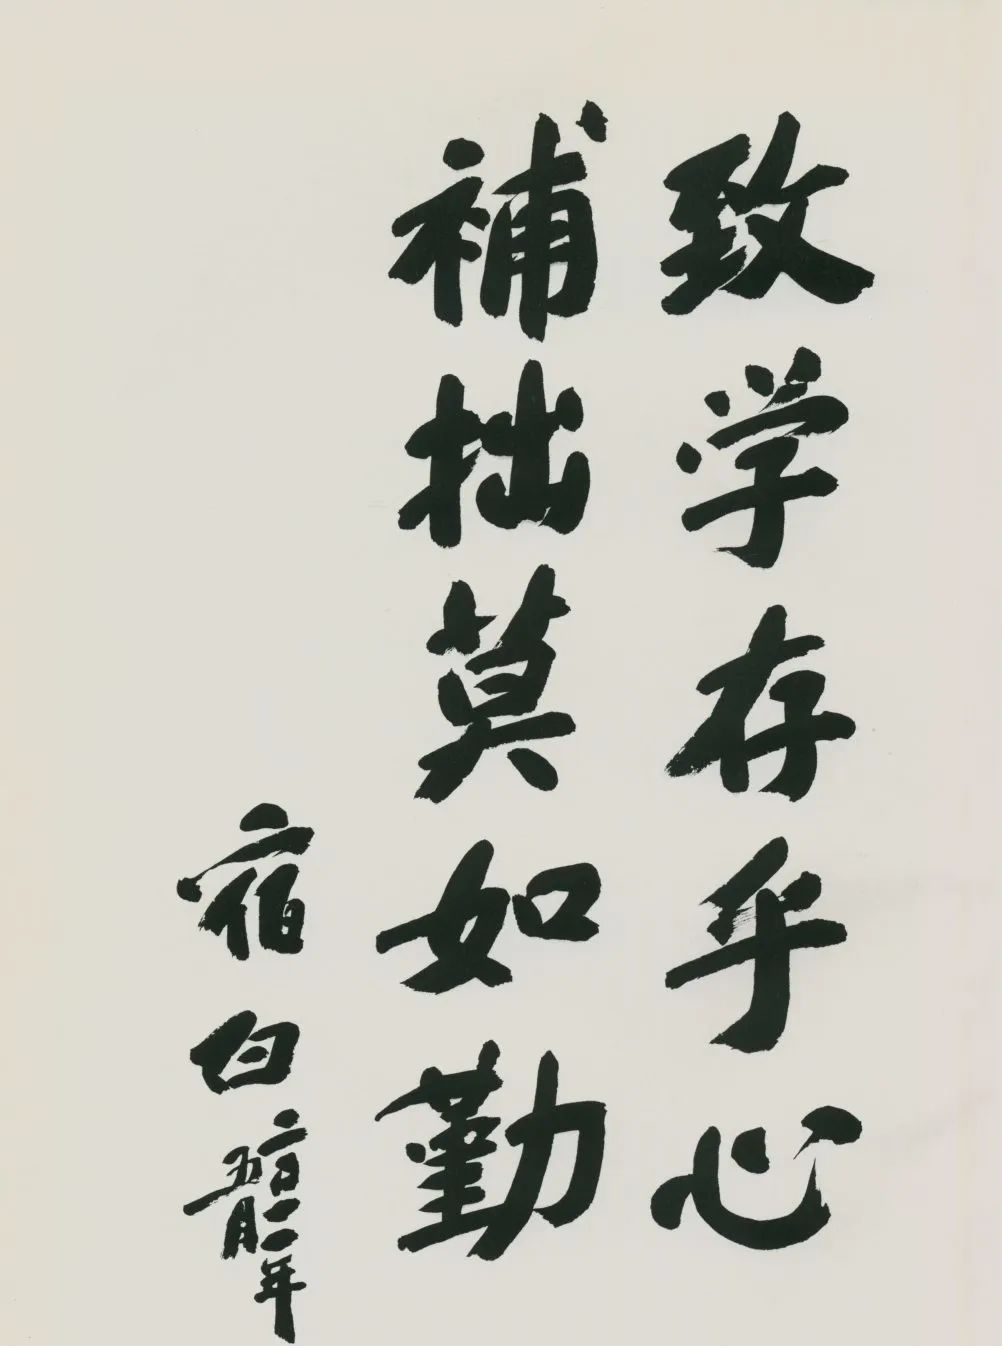 致学存乎心
補拙莫如勤
宿白 二〇一一年
五月